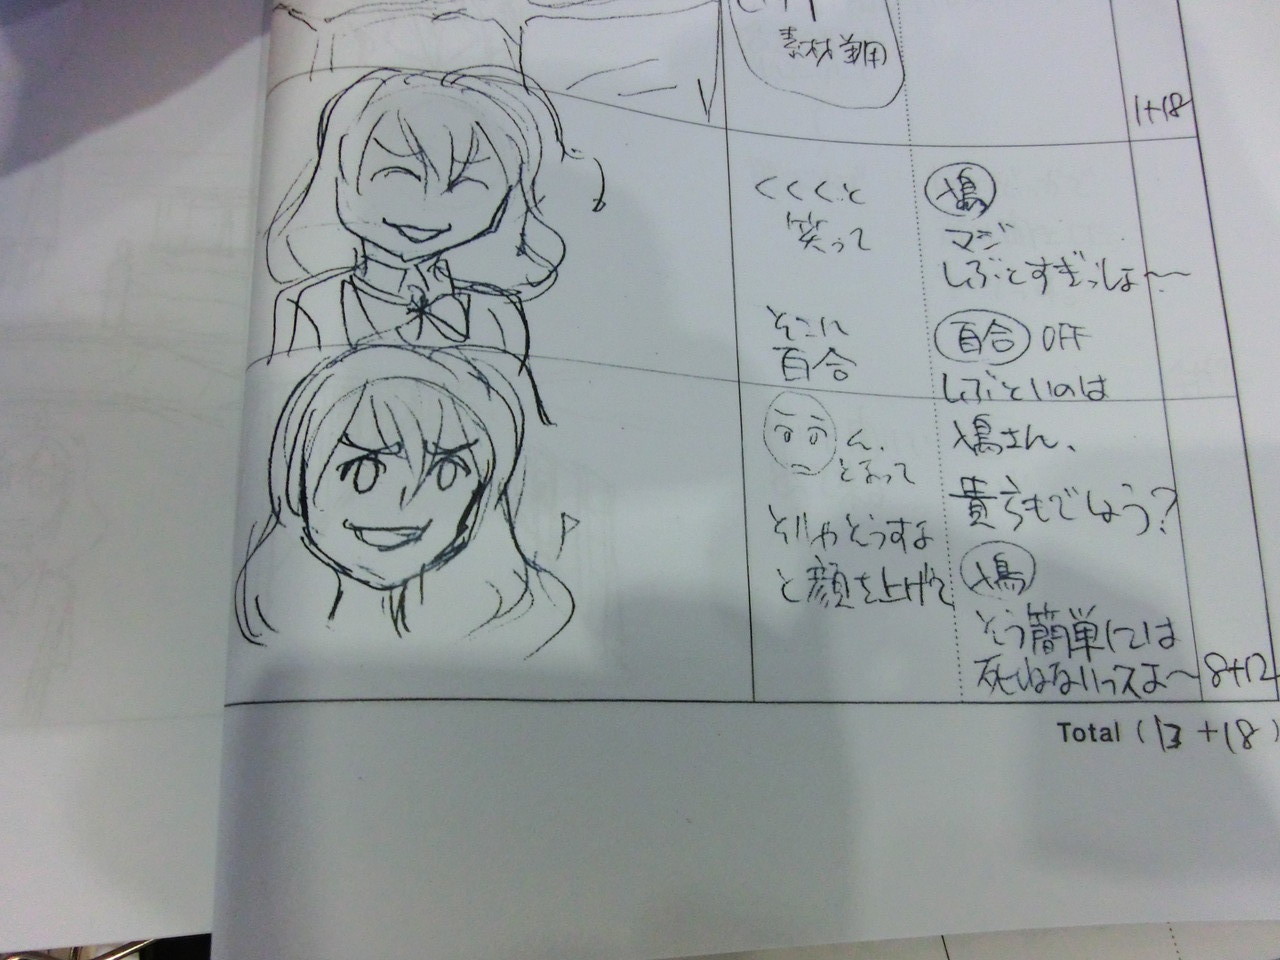 素材兼用
1+18
くくくと
笑って
そこに
百合
ん、
とまって
そりゃそうすな
と顔を上げて
鳩
マジ
しぶとすぎっしょ〜〜
百合 OFF
しぶといのは
鳩さん、
貴方もでしょう?
鳩
そう簡単には
死ねないっスよ〜
8+12
Total (13+18)